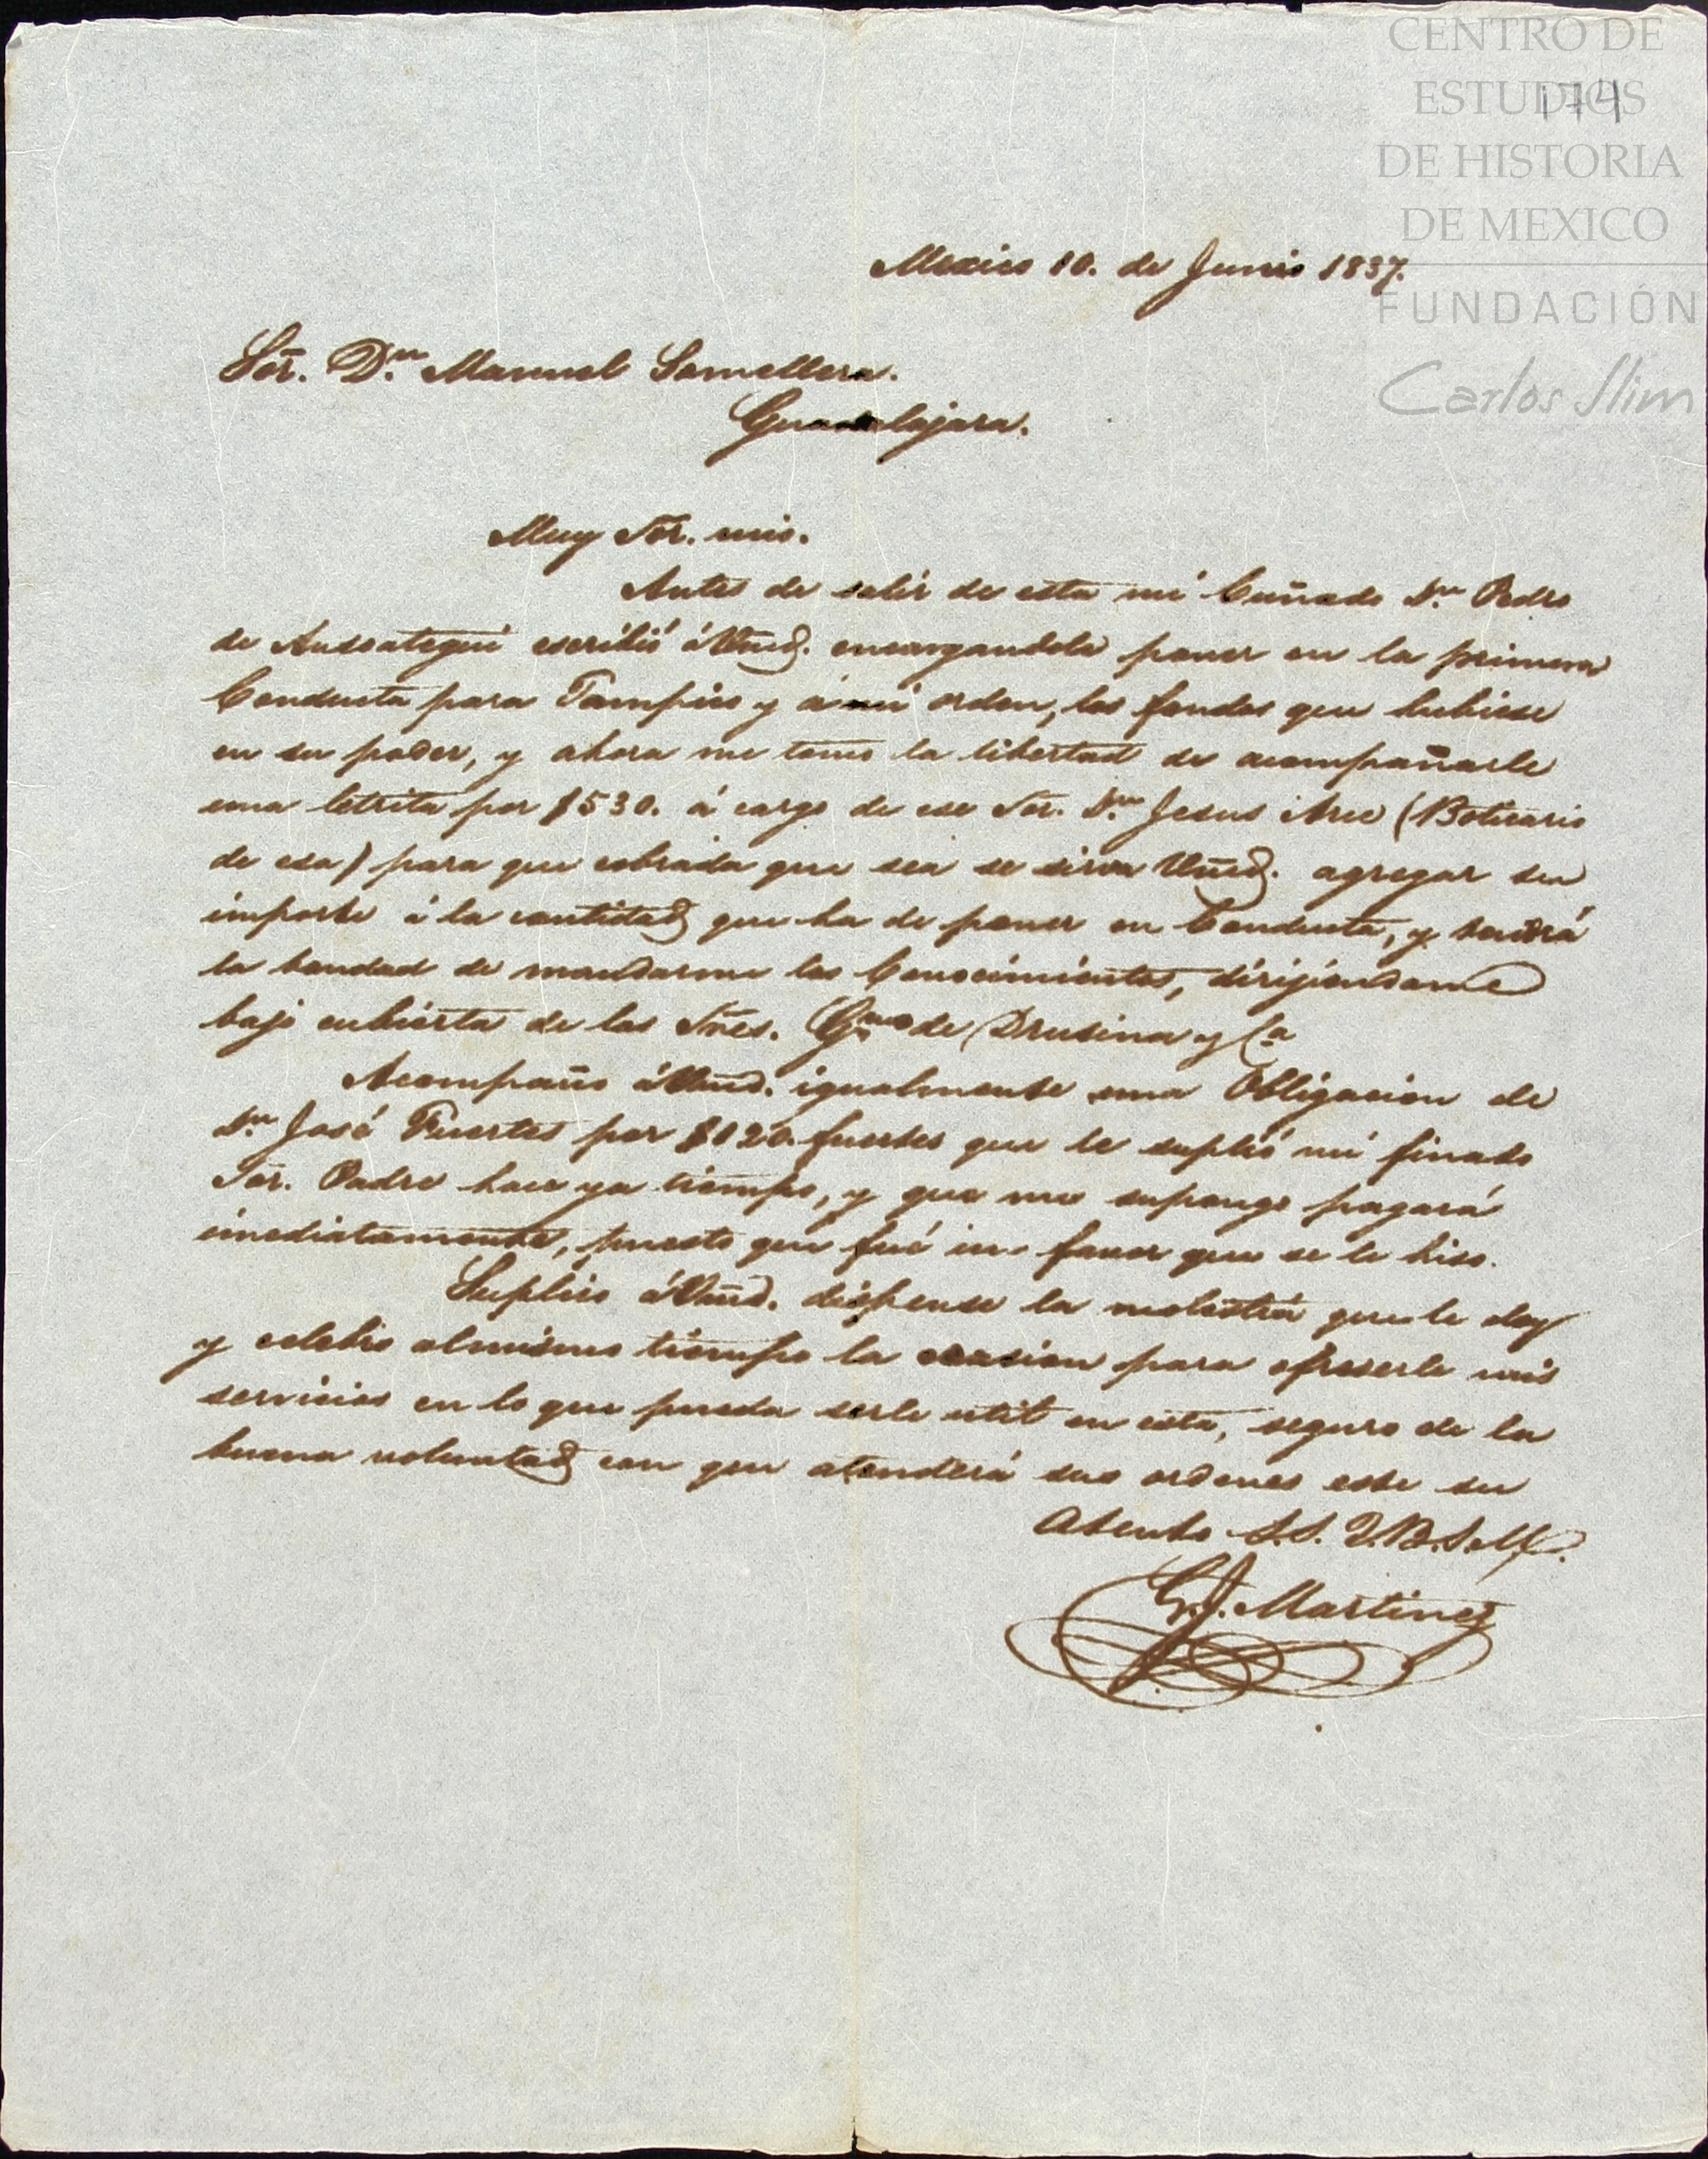 CENTRO DE
ESTUDIOS
DE HISTORIA
DE MEXICO
FUNDACIÓN
Carlos Slim
174
Mexico 10. de Junio 1837.
Sor. Dn. Manuel Somellera.
Guadalajara.
Muy Sor. mio.
Antes de salir de esta mi Cuñado Dn. Pedro
de Ansoategui escribió á Vmd. encargandole poner en la primera
Conducta para Tampico y á mi orden, los fondos que hubiese
en su poder, y ahora me tomo la libertad de acompañarle
una letrita por $530. á cargo de ese Sor. Dn. Jesus Arce (Boticario
de esa) para que cobrada que sea se sirva Vmd. agregar su
importe á la cantidad que ha de poner en Conducta, y tendrá
la bondad de mandarme los Conocimientos, dirijiendome
bajo cubierta de los Sres. Gmo de Drusina y Ca
Acompaño á Vmd. igualmente una Obligacion de
Dn José Fuertes por $120. fuertes que le suplió mi finado
Sor. Padre hace ya tiempo, y que me supongo pagará
imediatamente, puesto que fué un favor que se le hiso.
Suplico á Vmd. dispense la molestia que le doy
y celebro al mismo tiempo la ocasion para ofreserle mis
servicios en lo que pueda serle util en esta, seguro de la
buena voluntad con que atenderá sus ordenes este su
Atento S.S. Q.B.S.M.
G.J. Martinez